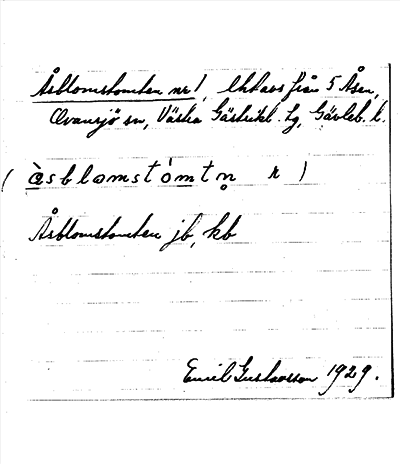 Åsblomstomten nr 1, lht avs från 5 Åsen,
Ovansjö sn, Västra Gästrikl. tg, Gävleb. l.
( åsblomstomtn̥ r )
Åsblomstomten jb, kb
Emil Gustavsson 1929.